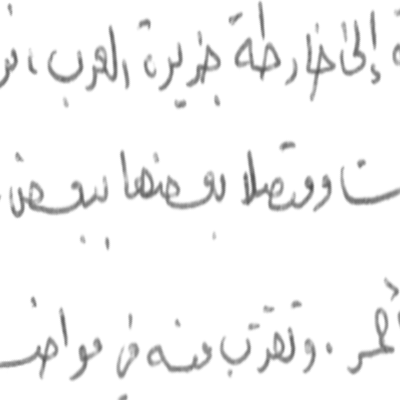 إلى خارطة جزيرة العرب، نر
ت ومتصلا بعضها ببعض
حمر. وتقترب منه في مواضـ